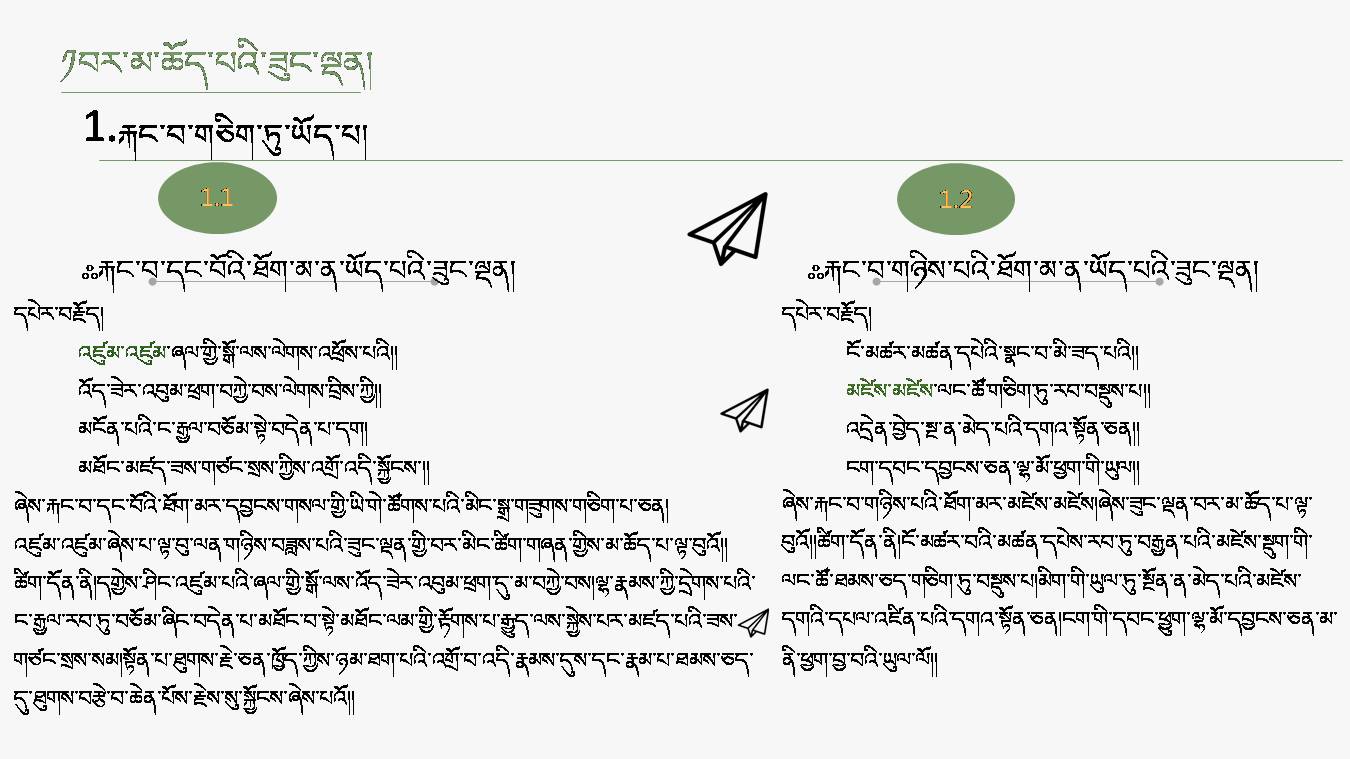 ༡བར་མ་ཆོད་པའི་ཟུང་ལྡན།
1.རྐང་བ་གཅིག་ཏུ་ཡོད་པ།
1.1
༜རྐང་བ་དང་པོའི་ཐོག་མ་ན་ཡོད་པའི་ཟུང་ལྡན།
དཔེར་བརྗོད།
འཛུམ་འཛུམ་ཞལ་གྱི་སྒོ་ལས་ལེགས་འཕྲོས་པའི།།
འོད་ཟེར་འབུམ་ཕྲག་བཀྱེ་བས་ལེགས་བྲིས་ཀྱི།།
མངོན་པའི་ང་རྒྱལ་བཅོམ་སྟེ་བདེན་པ་དག།
མཐོང་མཛད་ཟས་གཙང་སྲས་ཀྱིས་འགྲོ་འདི་སྐྱོངས་།།
ཞེས་རྐང་བ་དང་པོའི་ཐོག་མར་དབྱངས་གསལ་གྱི་ཡི་གེ་ཚོགས་པའི་མིང་སྒྲ་གཟུགས་གཅིག་པ་ཅན།
འཛུམ་འཛུམ་ཞེས་པ་ལྟ་བུ་ལན་གཉིས་བཟླས་པའི་ཟུང་ལྡན་གྱི་བར་མིང་ཚིག་གཞན་གྱིས་མ་ཆོད་པ་ལྟ་བུའོ།།
ཚིག་དོན་ནི།དགྱེས་ཤིང་འཛུམ་པའི་ཞལ་གྱི་སྒོ་ལས་འོད་ཟེར་འབུམ་ཕྲག་དུ་མ་བཀྱེ་བས།ལྷ་རྣམས་ཀྱི་དྲེགས་པའི་
ང་རྒྱལ་རབ་ཏུ་བཅོམ་ཞིང་བདེན་པ་མཐོང་བ་སྟེ་མཐོང་ལམ་གྱི་རྟོགས་པ་རྒྱུད་ལས་སྐྱེས་པར་མཛད་པའི་ཟས་
གཙང་སྲས་སམ།སྟོན་པ་ཐུགས་རྗེ་ཅན་ཁྱོད་ཀྱིས་ཉམ་ཐག་པའི་འགྲོ་བ་འདི་རྣམས་དུས་དང་རྣམ་པ་ཐམས་ཅད་
དུ་ཐུགས་བརྩེ་བ་ཆེན་པོས་རྗེས་སུ་སྐྱོངས་ཞེས་པའོ།།
1.2
༜རྐང་བ་གཉིས་པའི་ཐོག་མ་ན་ཡོད་པའི་ཟུང་ལྡན།
དཔེར་བརྗོད།
ངོ་མཚར་མཚན་དཔེའི་སྣང་བ་མི་ཟད་པའི།།
མཛེས་མཛེས་ལང་ཚོ་གཅིག་ཏུ་རབ་བསྡུས་པ།།
འདྲེན་བྱེད་སྔ་ན་མེད་པའི་དགའ་སྟོན་ཅན།།
ངག་དབང་དབྱངས་ཅན་ལྷ་མོ་ཕྱག་གི་ཡུལ།།
ཞེས་རྐང་བ་གཉིས་པའི་ཐོག་མར་མཛེས་མཛེས།ཞེས་ཟུང་ལྡན་བར་མ་ཆོད་པ་ལྟ་
བུའོ།།ཚིག་དོན་ནི།ངོ་མཚར་བའི་མཚན་དཔེས་རབ་ཏུ་བརྒྱན་པའི་མཛེས་སྡུག་གི་
ལང་ཚོ་ཐམས་ཅད་གཅིག་ཏུ་བསྡུས་པ།མིག་གི་ཡུལ་ཏུ་སྔོན་ན་མེད་པའི་མཛེས་
དགའི་དཔལ་འཛིན་པའི་དགའ་སྟོན་ཅན།ངག་གི་དབང་ཕྱུག་ལྷ་མོ་དབྱངས་ཅན་མ་
ནི་ཕྱག་བྱ་བའི་ཡུལ་ལོ།།